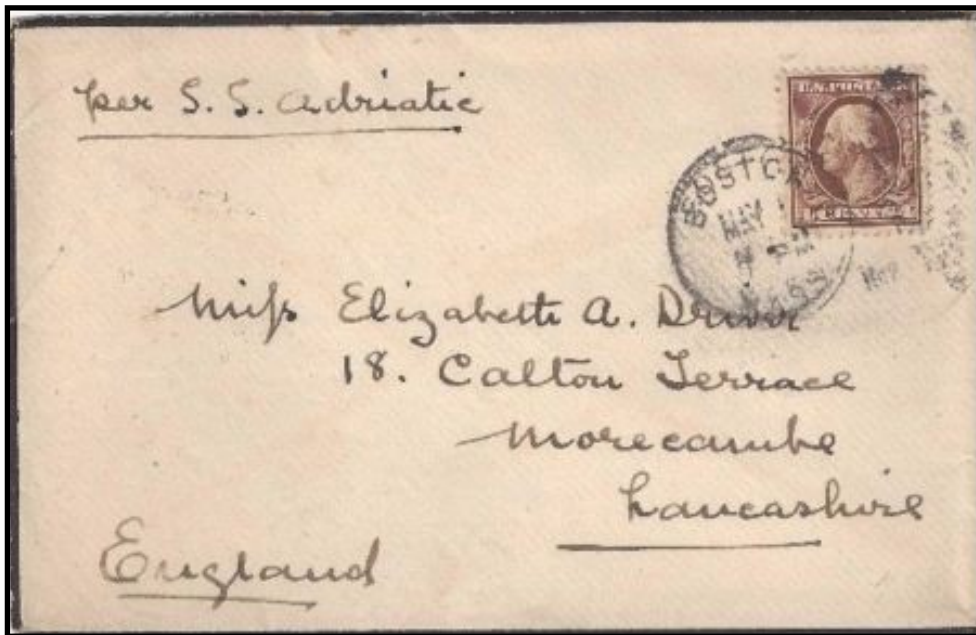 per S.S. Adriatic
BOSTON
MAY
MASS
Miss Elizabeth A. Driver
18. Calton Terrace
Morecambe
Lancashire
England